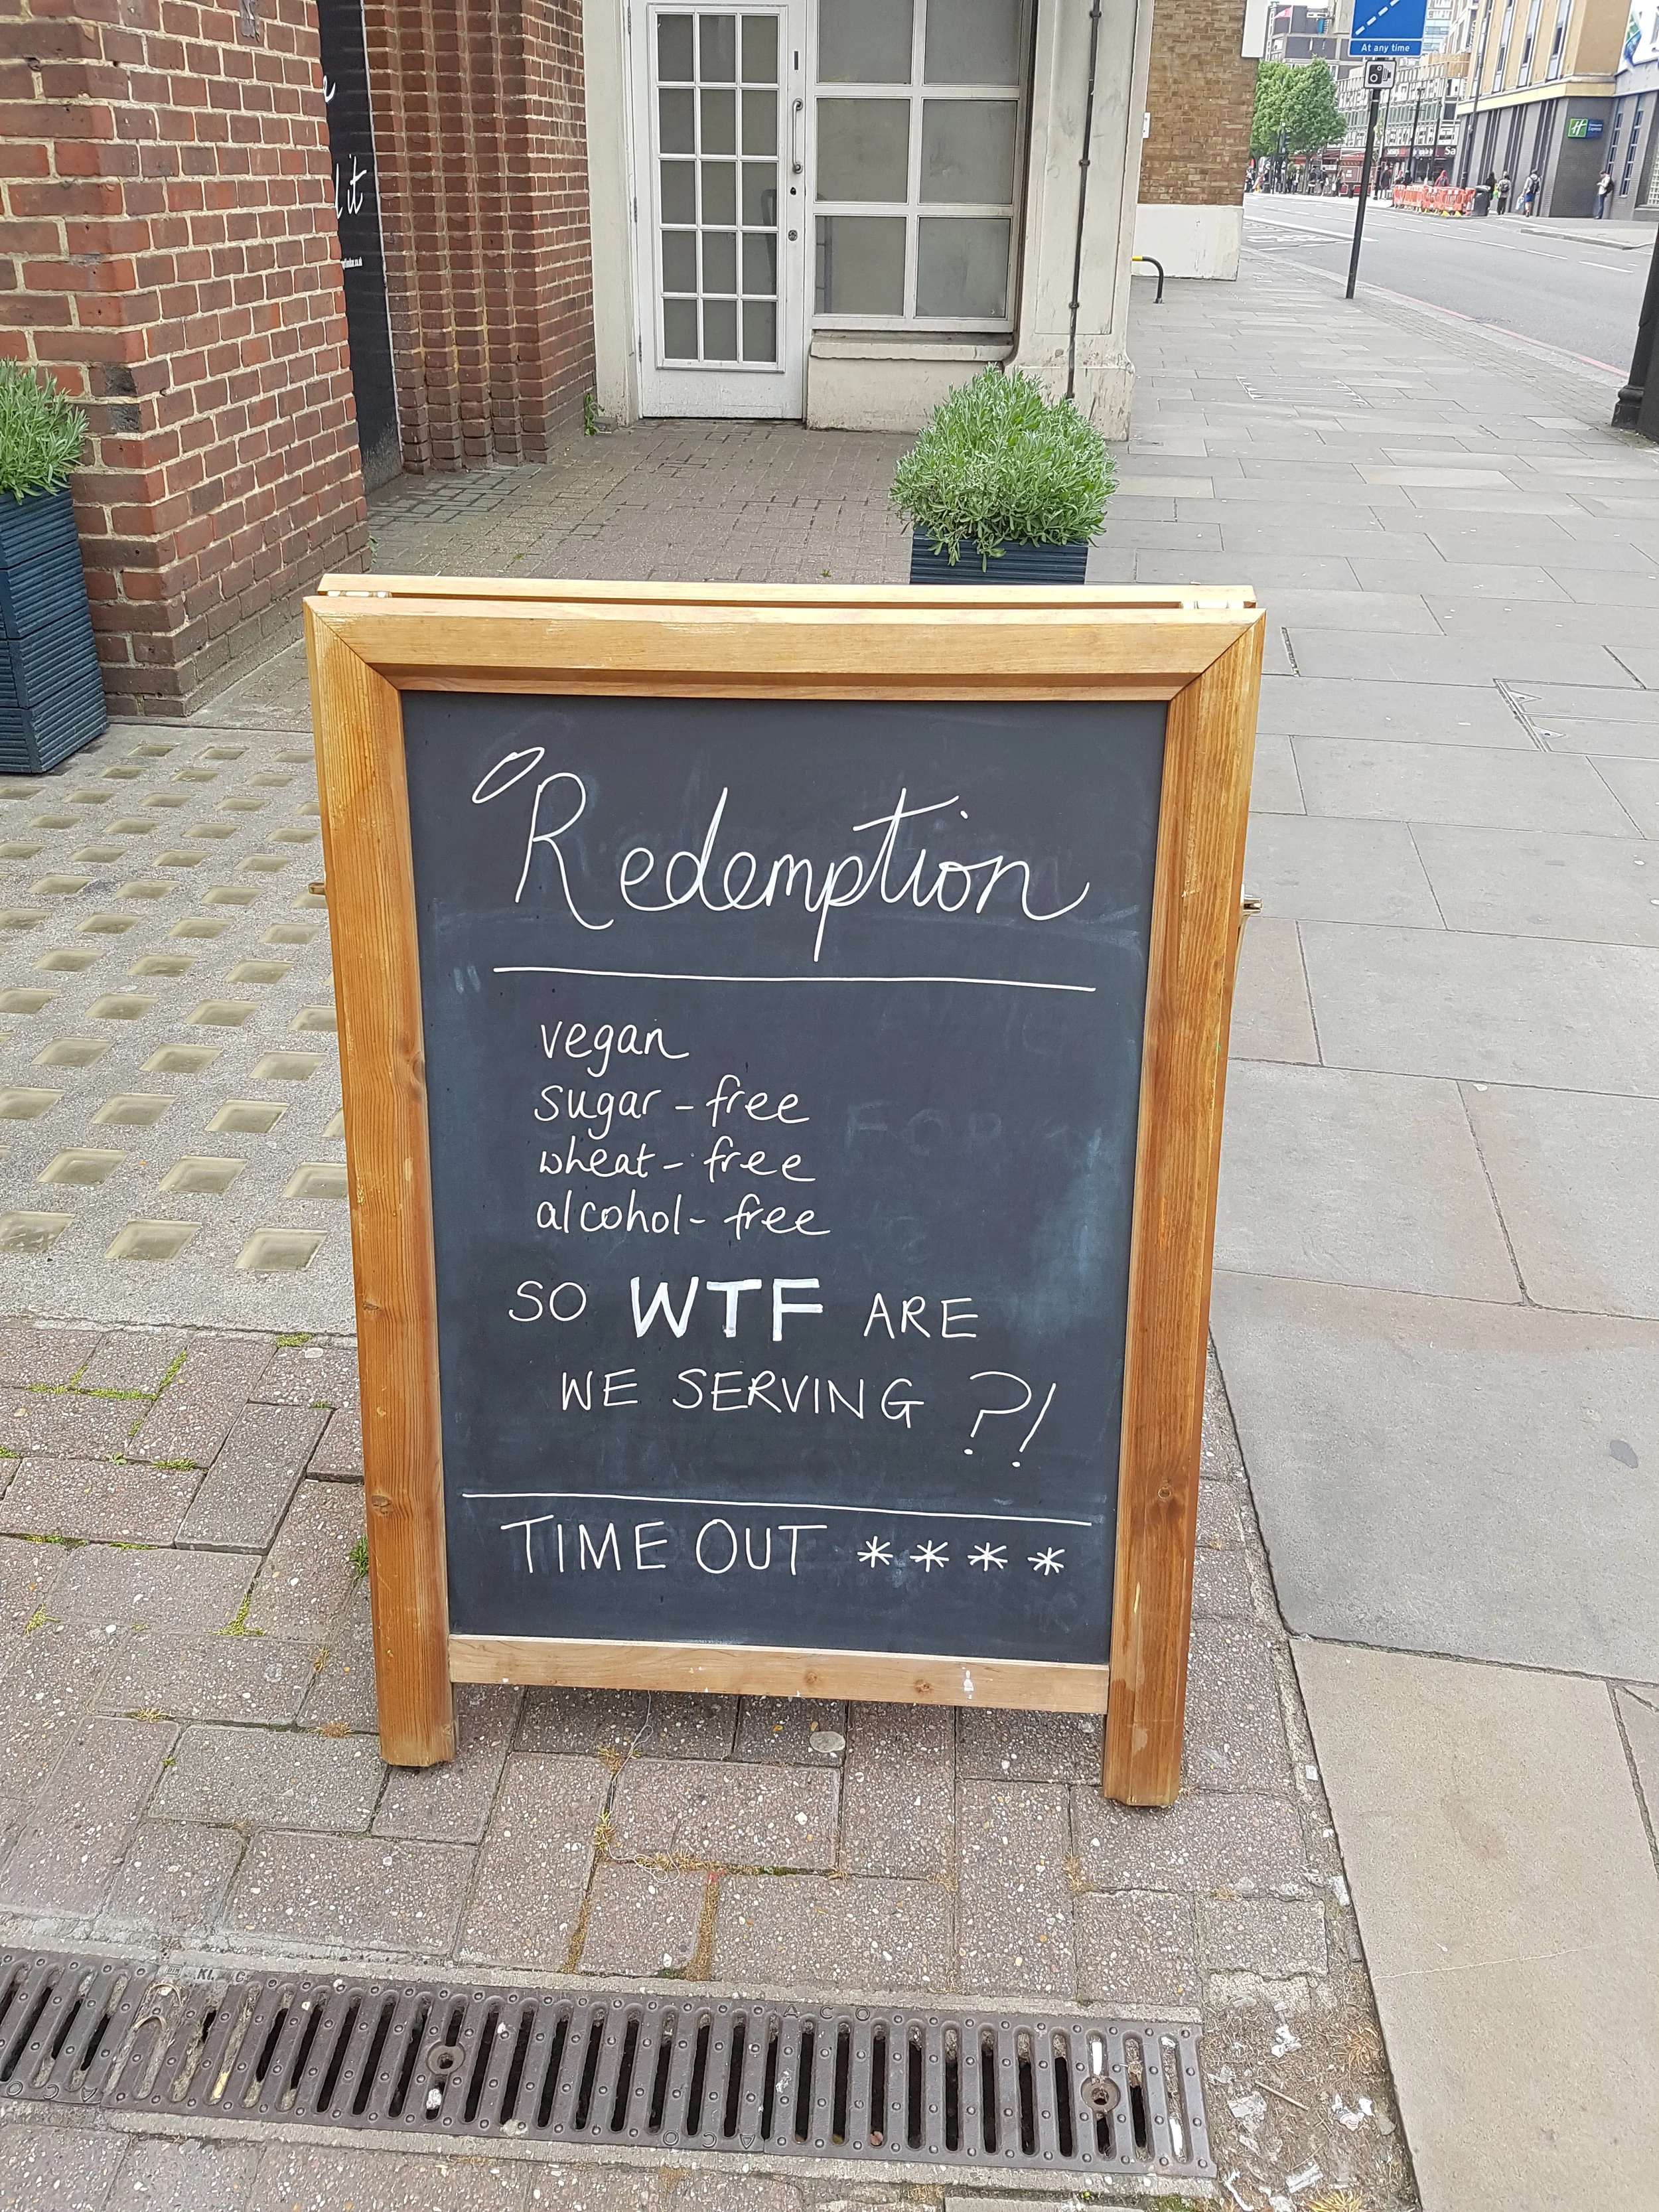 At any time
it
Redemption
vegan
sugar-free
wheat-free
alcohol-free
SO WTF ARE
WE SERVING ?!
TIME OUT ****
ACO
ACO